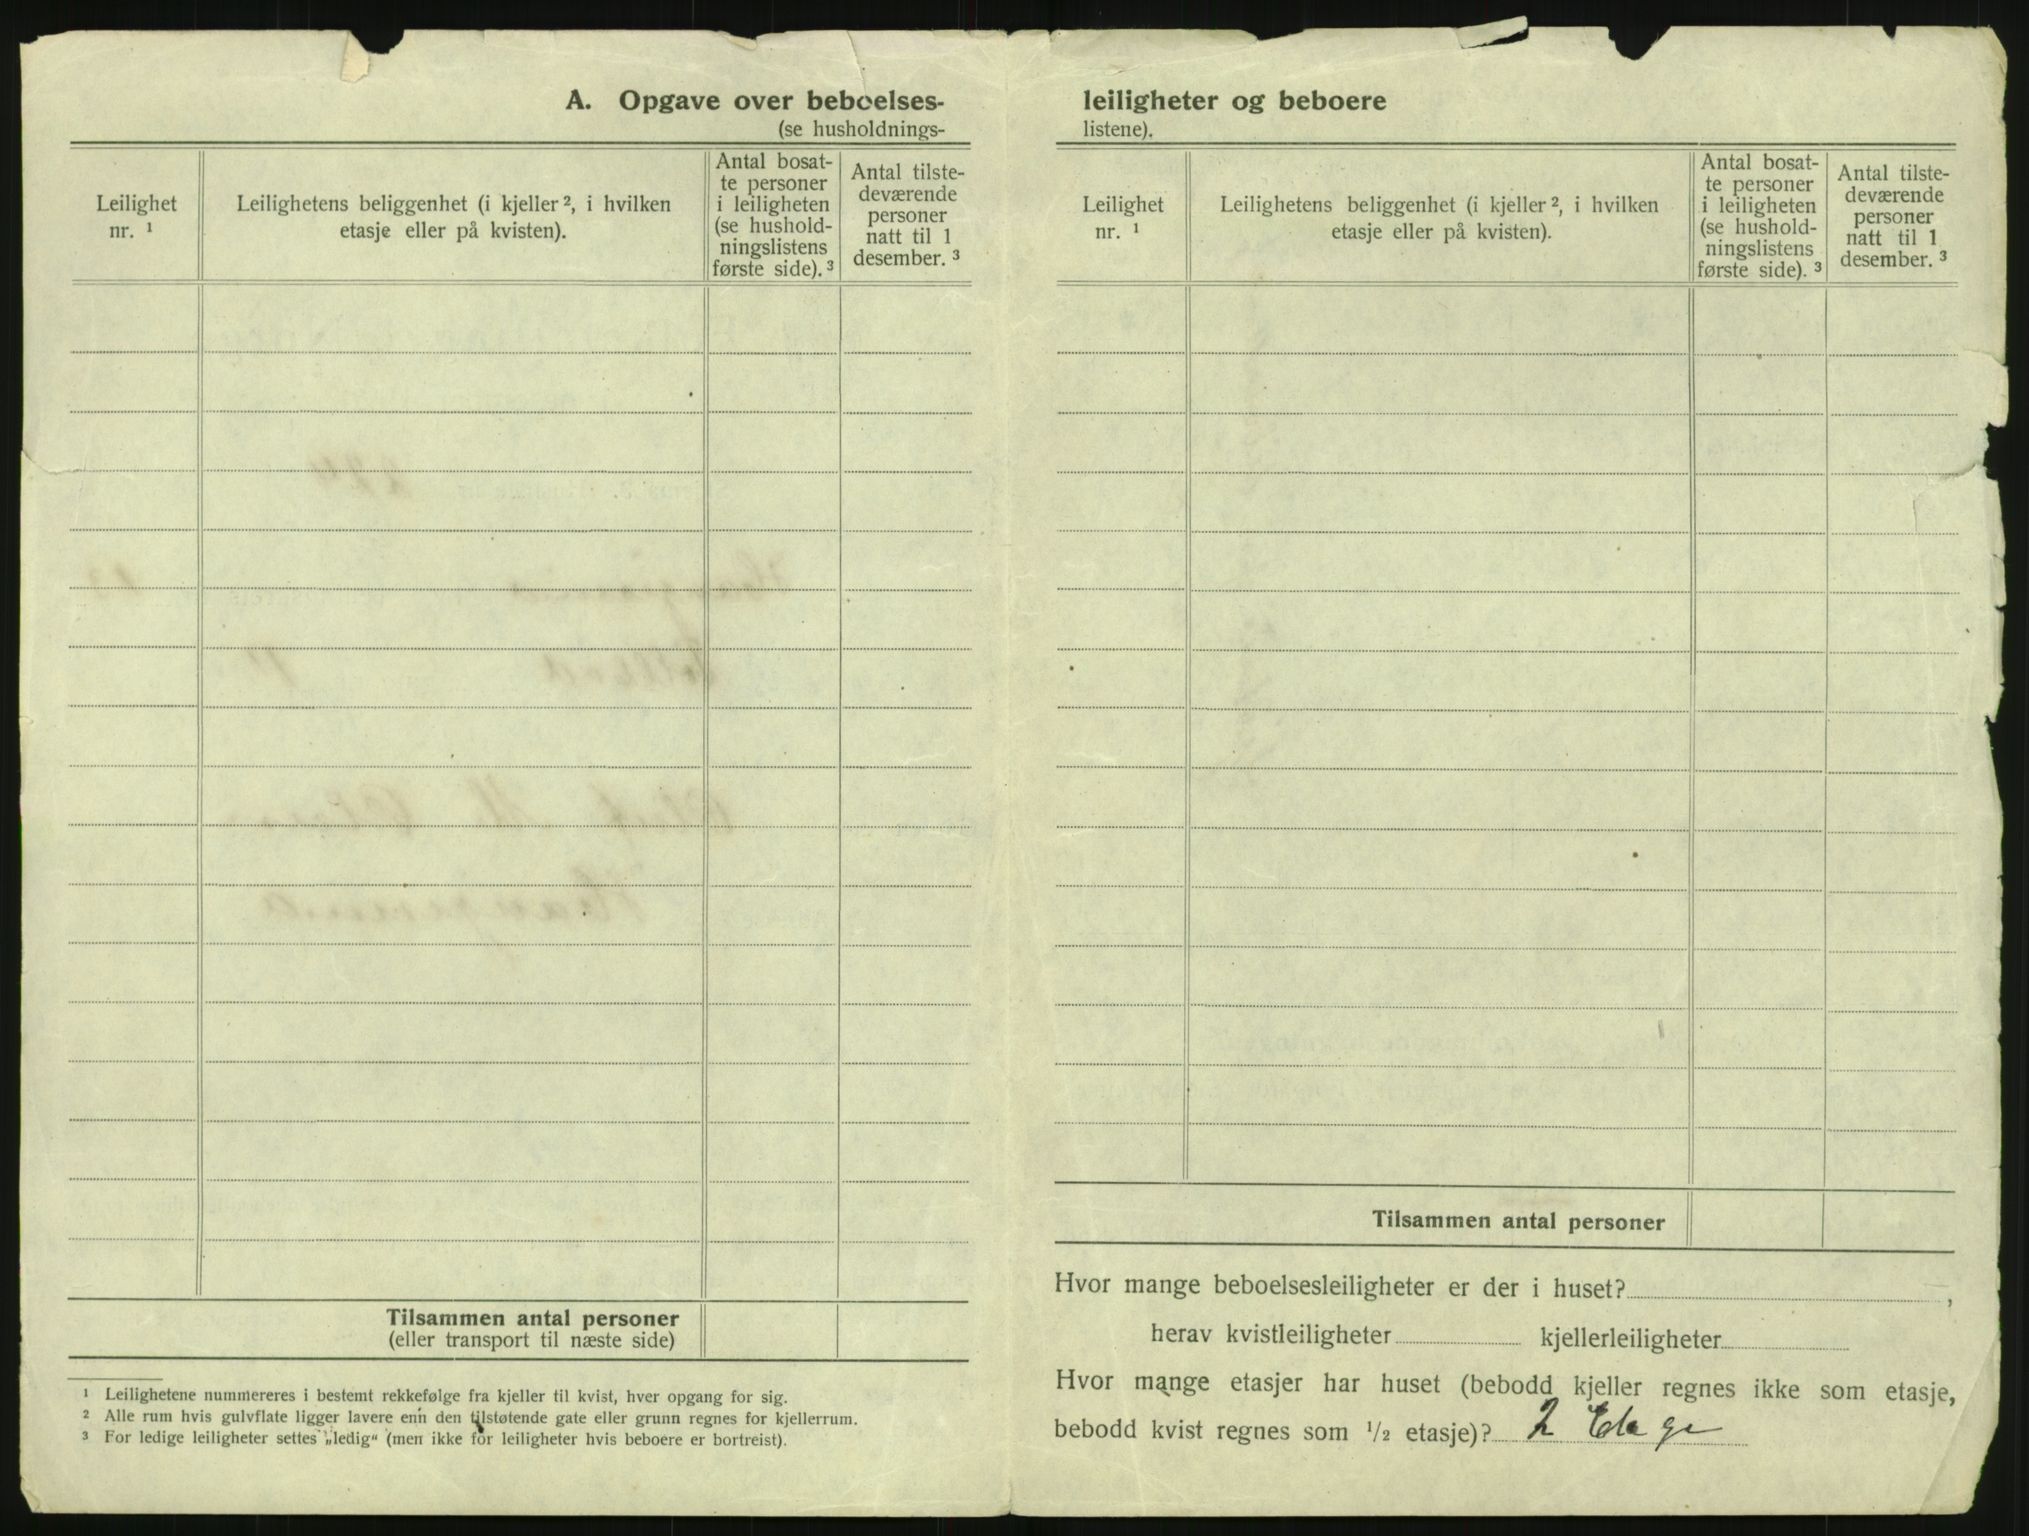 A. Opgave over beboelses-
(se husholdnings-
Leilighet nr. ¹
Leilighetens beliggenhet (i kjeller ², i hvilken etasje eller på kvisten).
Antal bosat-
te personer
i leiligheten
(se hushold-
ningslistens
første side). ³
Antal tilste-
deværende
personer
natt til 1
desember. ³
Tilsammen antal personer
(eller transport til næste side)
¹ Leilighetene nummereres i bestemt rekkefølge fra kjeller til kvist, hver opgang for sig.
² Alle rum hvis gulvflate ligger lavere enn den tilstøtende gate eller grunn regnes for kjellerrum.
³ For ledige leiligheter settes „ledig“ (men ikke for leiligheter hvis beboere er bortreist).
leiligheter og beboere
listene).
Leilighet nr. ¹
Leilighetens beliggenhet (i kjeller ², i hvilken etasje eller på kvisten).
Antal bosat-
te personer
i leiligheten
(se hushold-
ningslistens
første side). ³
Antal tilste-
deværende
personer
natt til 1
desember. ³
Tilsammen antal personer
Hvor mange beboelsesleiligheter er der i huset? ,
herav kvistleiligheter kjellerleiligheter
Hvor mange etasjer har huset (bebodd kjeller regnes ikke som etasje,
bebodd kvist regnes som 1/2 etasje)? 2